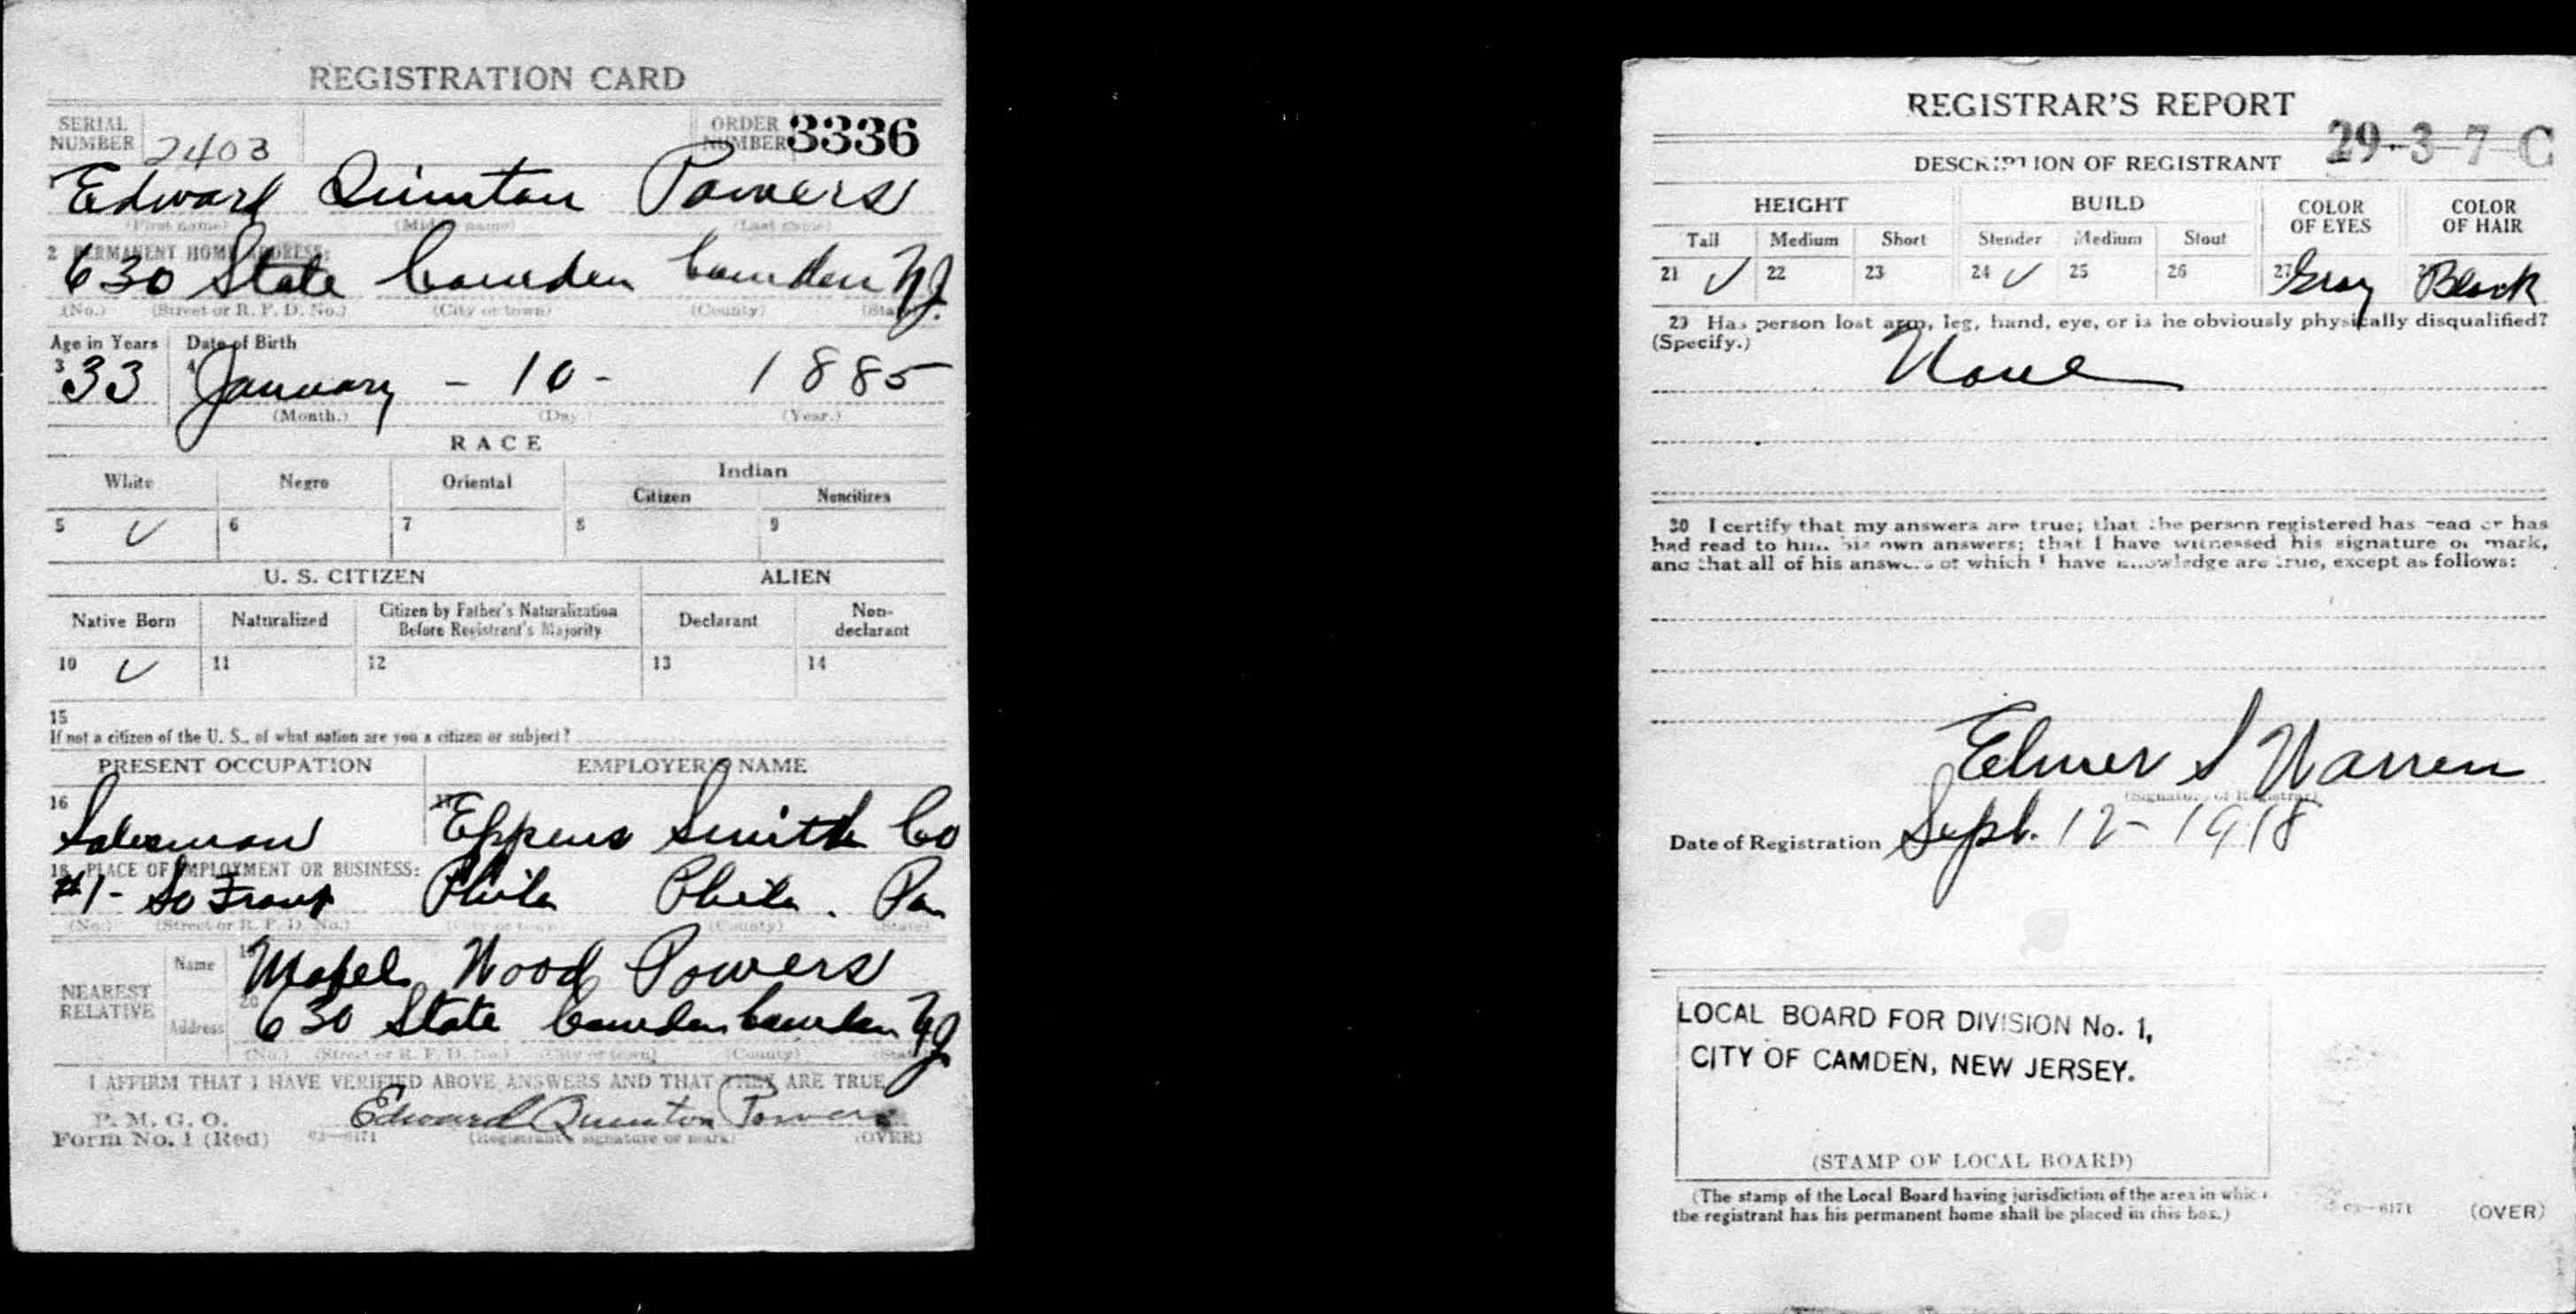 REGISTRATION CARD
SERIAL NUMBER 2403 ORDER NUMBER 3336
Edward Quinton Powers
(First name) (Middle name) (Last name)
2 PERMANENT HOME ADDRESS:
630 State Camden Camden N.J.
(No.) (Street or R. F. D. No.) (City or town) (County) (State)
Age in Years Date of Birth
3 33 4 January - 10 - 1885
(Month.) (Day.) (Year.)
RACE
White Negro Oriental Indian
Citizen Noncitizen
5 ✓ 6 7 8 9
U. S. CITIZEN ALIEN
Native Born Naturalized Citizen by Father's Naturalization Before Registrant's Majority Declarant Non-declarant
10 ✓ 11 12 13 14
15
If not a citizen of the U. S., of what nation are you a citizen or subject?
PRESENT OCCUPATION EMPLOYER'S NAME
16 Salesman 17 Eppens Smith Co
18 PLACE OF EMPLOYMENT OR BUSINESS:
#1- So Front Phila Phila. Pa
(No.) (Street or R. F. D. No.) (City or town) (County) (State)
NEAREST RELATIVE
Name 19 Mabel Wood Powers
Address 20 630 State Camden Camden NJ
(No.) (Street or R. F. D. No.) (City or town) (County) (State)
I AFFIRM THAT I HAVE VERIFIED ABOVE ANSWERS AND THAT THEY ARE TRUE
P. M. G. O.
Form No. 1 (Red) 03—6171 Edward Quinton Powers
(Registrant's signature or mark) (OVER)
REGISTRAR'S REPORT
29-3-7-C
DESCRIPTION OF REGISTRANT
HEIGHT BUILD COLOR OF EYES COLOR OF HAIR
Tall Medium Short Slender Medium Stout
21 ✓ 22 23 24 ✓ 25 26 27 Gray 28 Black
29 Has person lost arm, leg, hand, eye, or is he obviously physically disqualified?
(Specify.)
None
30 I certify that my answers are true; that the person registered has read or has
had read to him his own answers; that I have witnessed his signature or mark,
and that all of his answers of which I have knowledge are true, except as follows:
Elmer S Warren
(Signature of Registrar)
Date of Registration Sept. 12 - 1918
LOCAL BOARD FOR DIVISION No. 1,
CITY OF CAMDEN, NEW JERSEY.
(STAMP OF LOCAL BOARD)
(The stamp of the Local Board having jurisdiction of the area in which
the registrant has his permanent home shall be placed in this box.)
03—6171 (OVER)